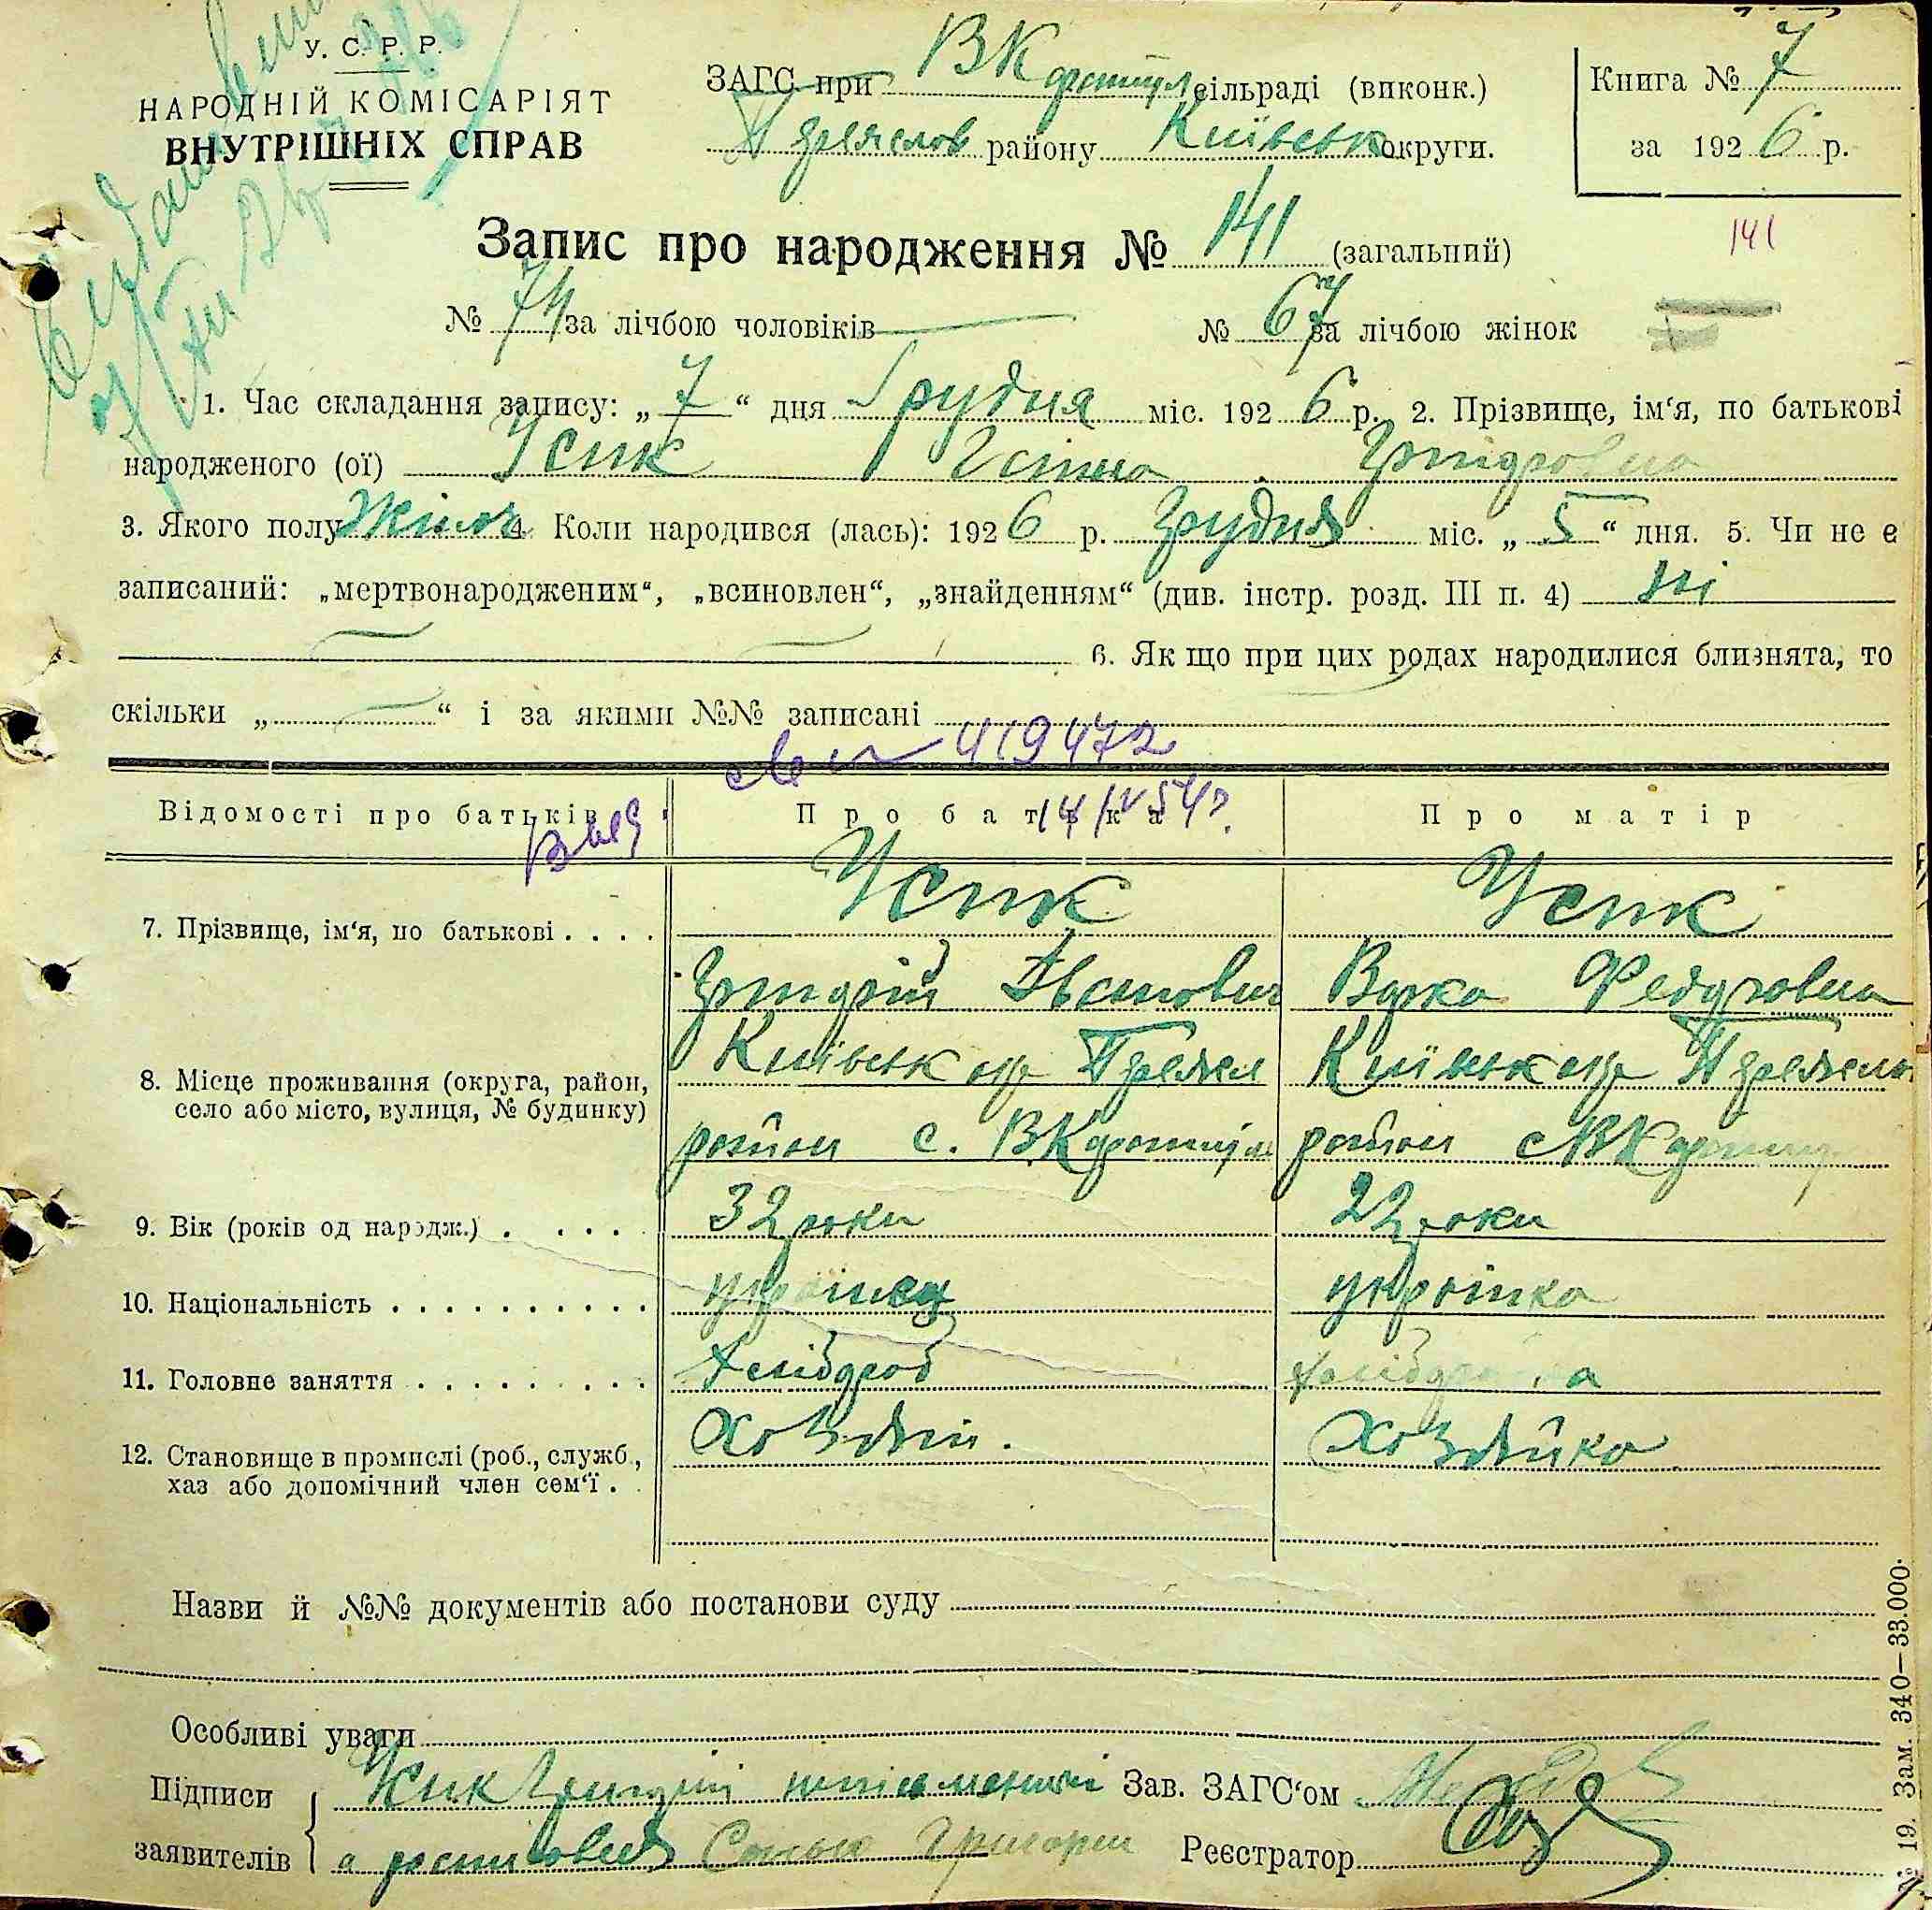 У. С. Р. Р.
НАРОДНІЙ КОМІСАРІЯТ
ВНУТРІШНІХ СПРАВ
ЗАГС при ВК сільраді (виконк.)
району Київськ округи.
Книга № 7
за 1926 р.
Запис про народження № 141 (загальний)
141
№ 74 за лічбою чоловіків № 67 за лічбою жінок
1. Час складання запису: „7“ дня Грудня міс. 1926 р. 2. Прізвище, ім‘я, по батькові
народженого (ої) Усик
3. Якого полу 4 Коли народився (лась): 1926 р. грудня міс. „5“ дня. 5. Чи не є
записаний: „мертвонародженим“, „всиновлен“, „знайденням“ (див. інстр. розд. III п. 4) ні
6. Як що при цих родах народилися близнята, то
скільки „ “ і за якими №№ записані
419472
Відомості про батьків Про батька Про матір
14/IV 54р.
7. Прізвище, ім‘я, по батькові . . . . Усик Усик
Григорій Іванович Варка Федоровна
8. Місце проживання (округа, район,
село або місто, вулиця, № будинку)
Київськ окр Київськ окр
район с. ВК район с ВК
9. Вік (років од народж.) . . . . 32 роки 22 роки
10. Національність . . . . . . . . . . українец українка
11. Головне заняття . . . . . . . . . хлібороб
12. Становище в промислі (роб., служб.,
хаз або допомічний член сем‘ї . .
Хозяїн. Хозяйка
Назви й №№ документів або постанови суду
Особливі уваги
Підписи
заявителів
Усик Григорій
а росписався Григорій
Зав. ЗАГС‘ом
Реєстратор
№ 19. Зам. 340—33.000.